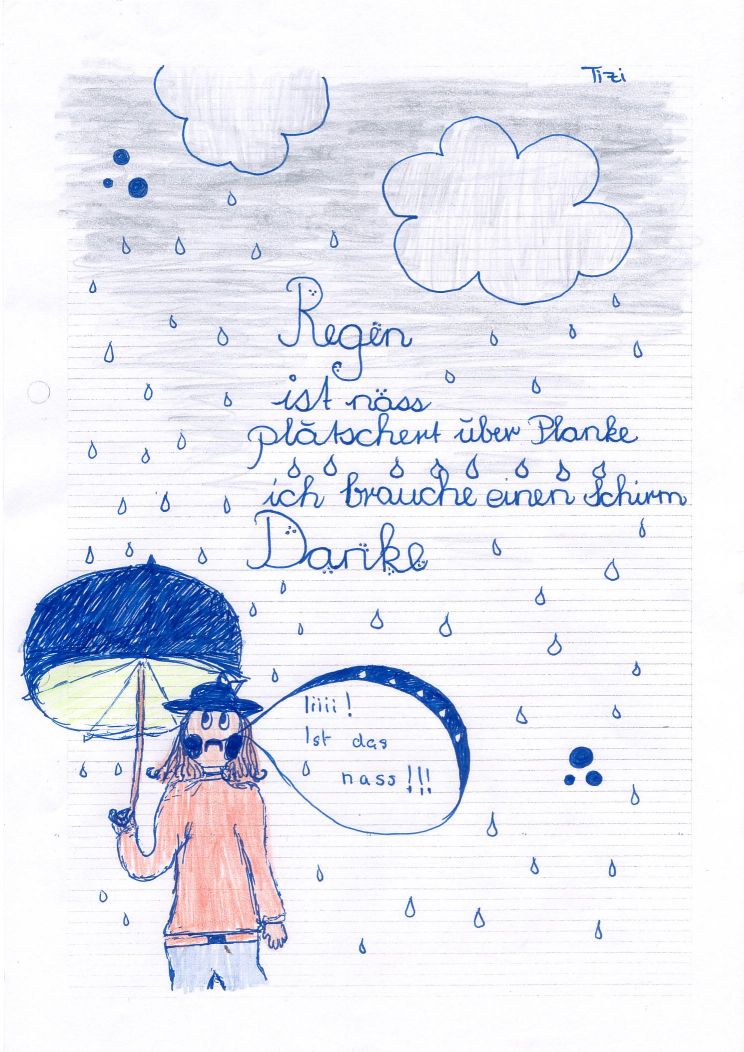 Tizi
Regen
ist näss
plätschert über Planke
ich brauche einen Schirm
Danke
Iiiii!
Ist das
nass!!!